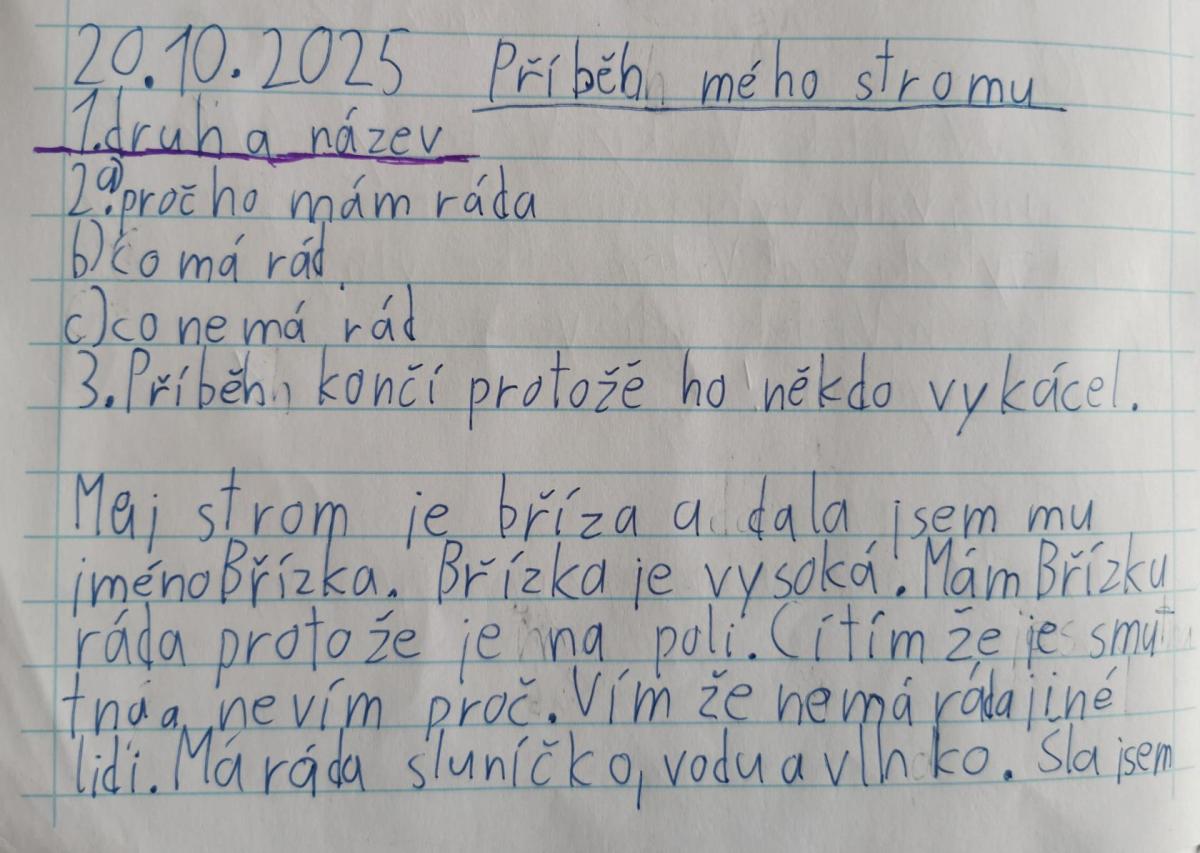 20.10.2025 Příběh mého stromu
1.druh a název
2.a)proč ho mám ráda
b)co má rád
c)co nemá rád
3.Příběh končí protožě ho někdo vykácel.
Maj strom je bříza a dala jsem mu
jméno Břízka. Břízka je vysoká. Mám Břízku
ráda protože je na poli. Cítím že je smu
tná a nevím proč. Vím že nemá ráda jiné
lidi. Má ráda sluníčko, vodu a vlhko. Šla jsem